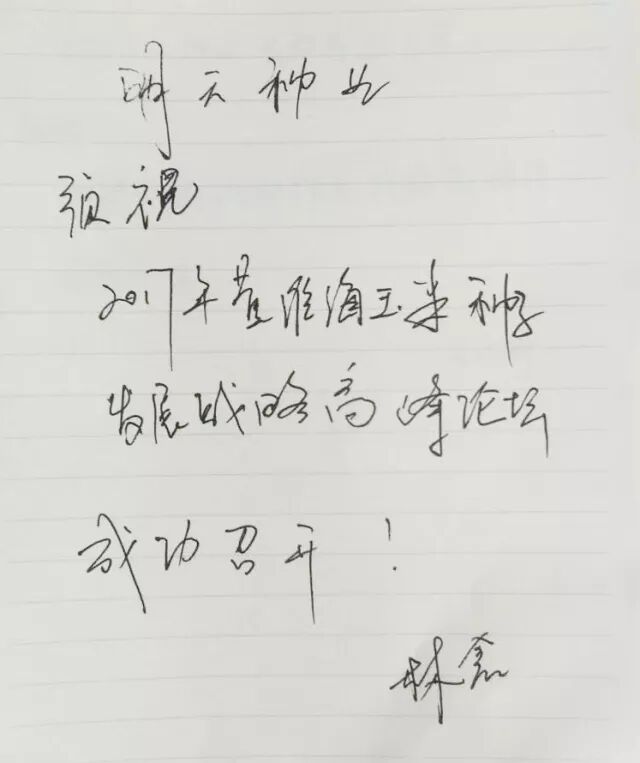 明天种业
预祝
2017年黄淮海玉米种子
发展战略高峰论坛
成功召开！
林鑫